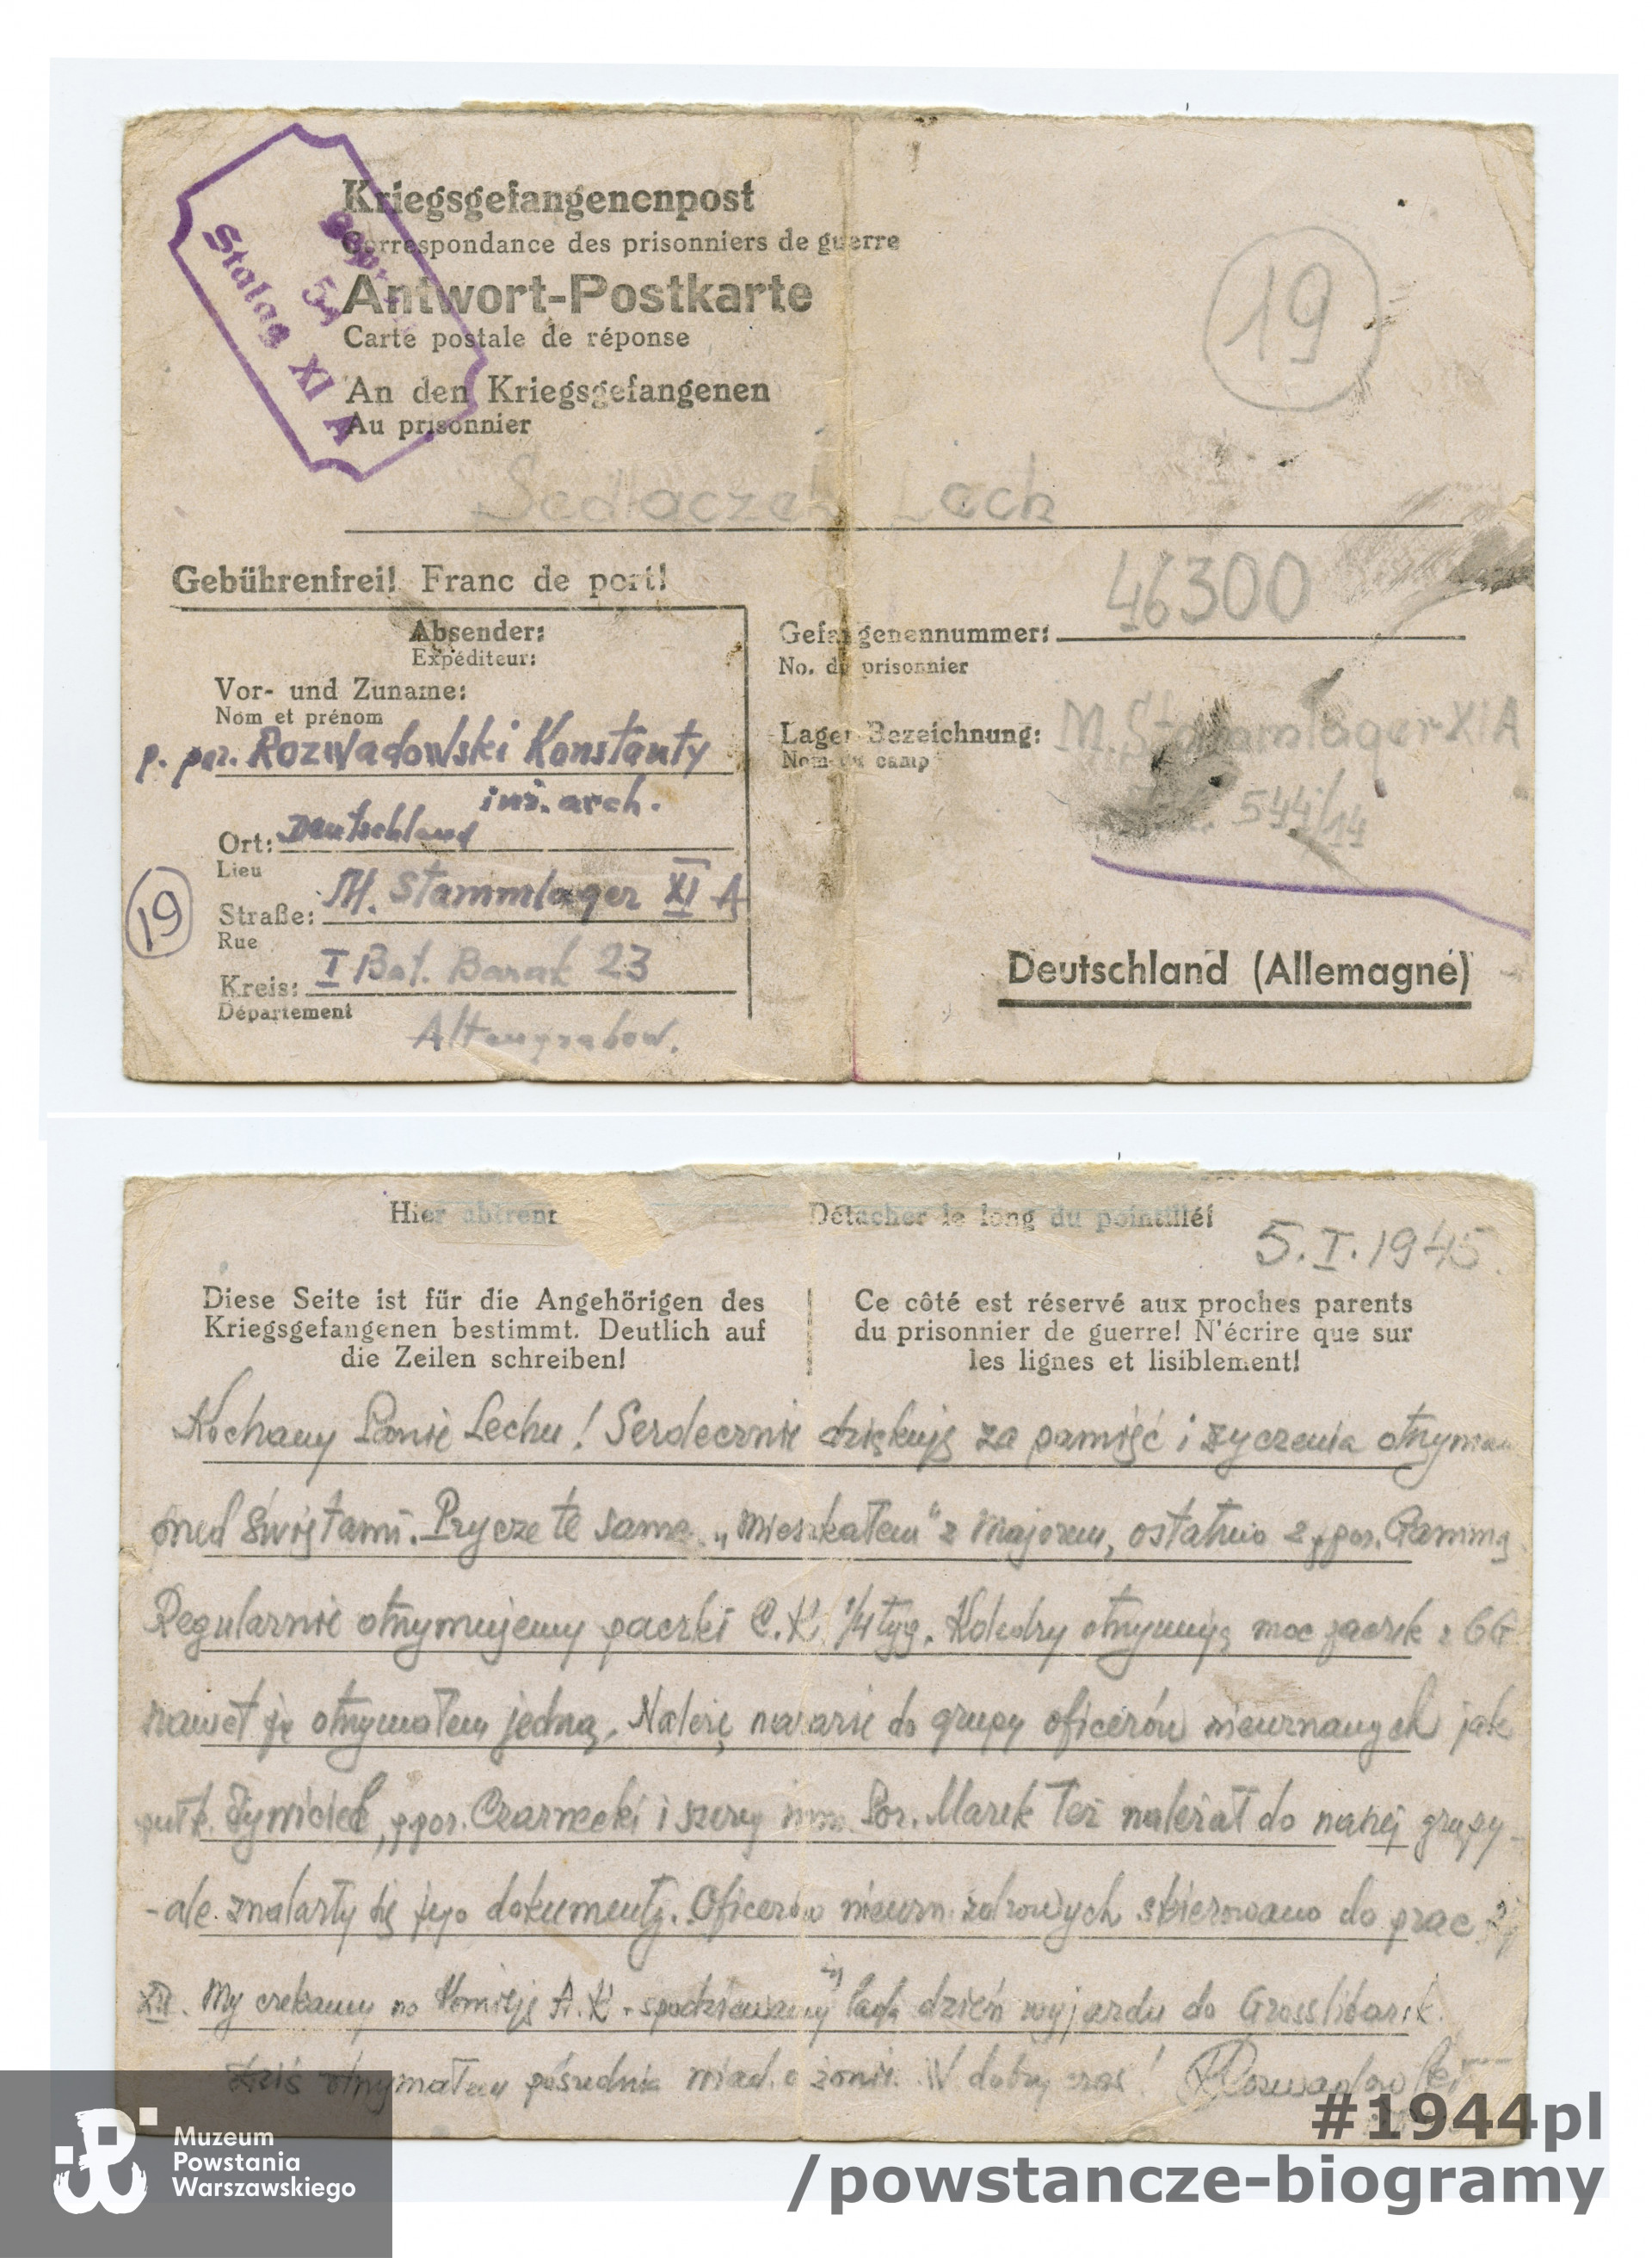 Kriegsgefangenenpost
Correspondance des prisonniers de guerre
Antwort-Postkarte
Carte postale de réponse
An den Kriegsgefangenen
Au prisonnier
54
Stalag XI A
19
Sedlaczek Lech
Gebührenfrei! Franc de port!
Absender:
Expéditeur:
Vor- und Zuname:
Nom et prénom
p. por. Rozwadowski Konstanty
inż. arch.
Ort: Deutschland
Lieu
Straße: M. Stammlager XI A
Rue
19
Kreis: I Bat. Barak 23
Département
Altengrabow.
Gefangenennummer: 46300
No. du prisonnier
Lager-Bezeichnung: M. Stammlager XI A
Nom du camp
544/14
Deutschland (Allemagne)
Hier abtrenn
Détacher le long du pointillé!
5.I.1945
Diese Seite ist für die Angehörigen des
Kriegsgefangenen bestimmt. Deutlich auf
die Zeilen schreiben!
Ce côté est réservé aux proches parents
du prisonnier de guerre! N'écrire que sur
les lignes et lisiblement!
Kochany Panie Lechu! Serdecznie dziękuję za pamięć i życzenia
przed świętami. Prycze te same. „Mieszkałem" z majorem, ostatnio z ppor. Gammą
Regularnie otrzymujemy paczki C.K. 1/4 tyg. Koledzy otrzymują moc paczek z GG
nawet ja otrzymałem jedną. Należę na razie do grupy oficerów nieuznanych jak
pułk. Żywiciel, ppor. Czarnecki i szereg Por. Marek też należał do naszej grupy -
- ale znalazły się jego dokumenty. Oficerów nieuzn. zdrowych skierowano do prac
XII. My czekamy na Komisję A.K. spodziewamy się lada dzień wyjazdu do
dziś otrzymałem pośrednio wiad. o żonie. W dobry czas! KRozwadowski
Muzeum
Powstania
Warszawskiego
#1944pl
/powstancze-biogramy